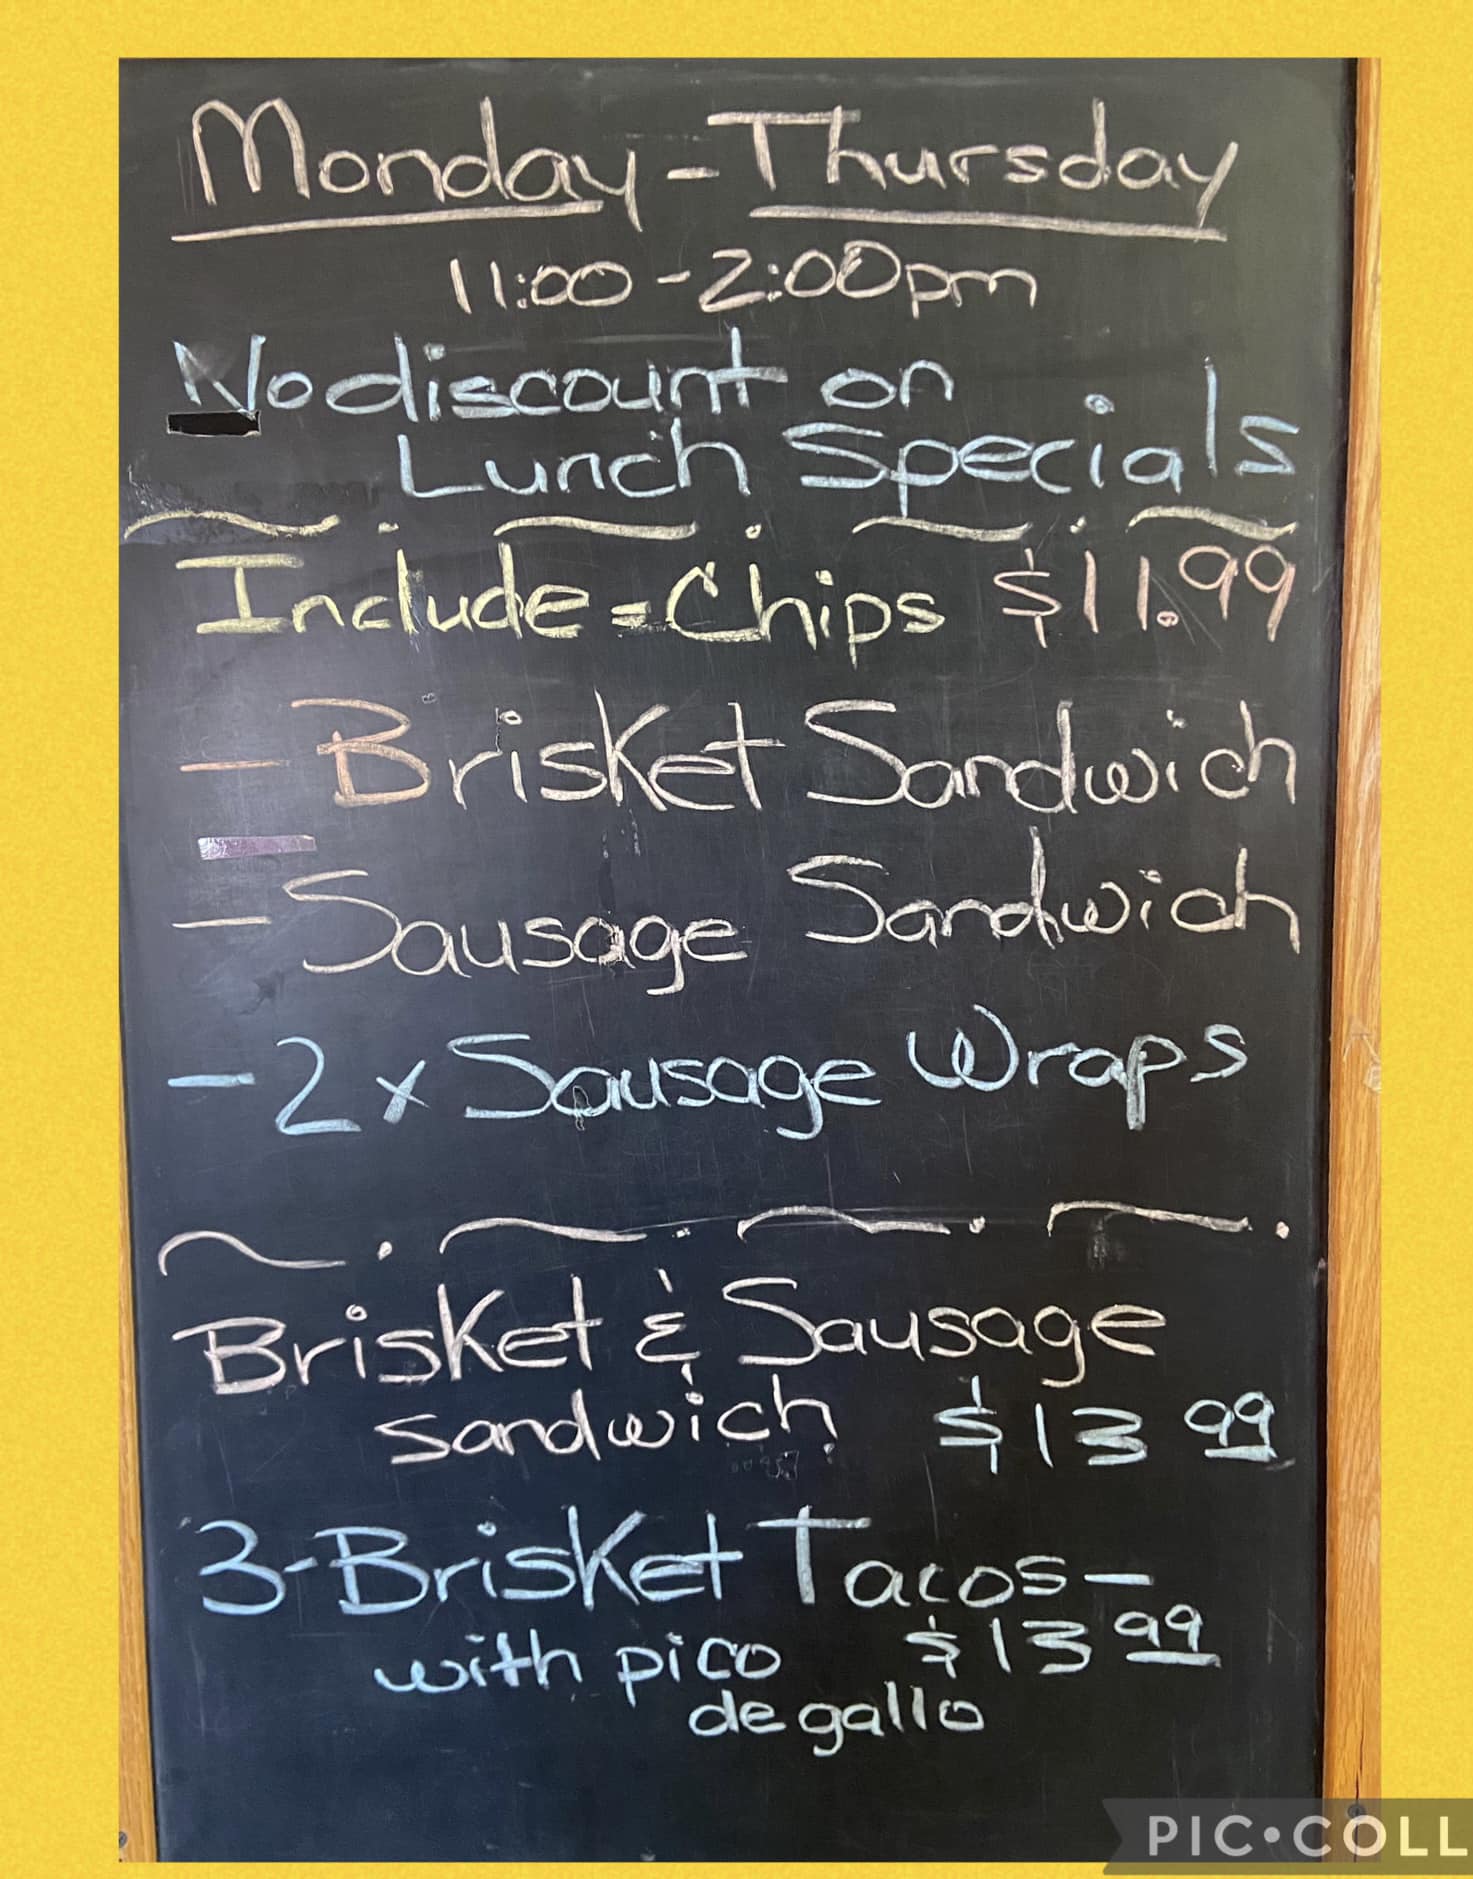 Monday - Thursday
11:00 - 2:00pm
No discount on
Lunch Specials
Include = Chips $11.99
- Brisket Sandwich
- Sausage Sandwich
- 2x Sausage Wraps
Brisket & Sausage
sandwich $13 99
3 - Brisket Tacos -
with pico $13 99
de gallo
PIC•COLL